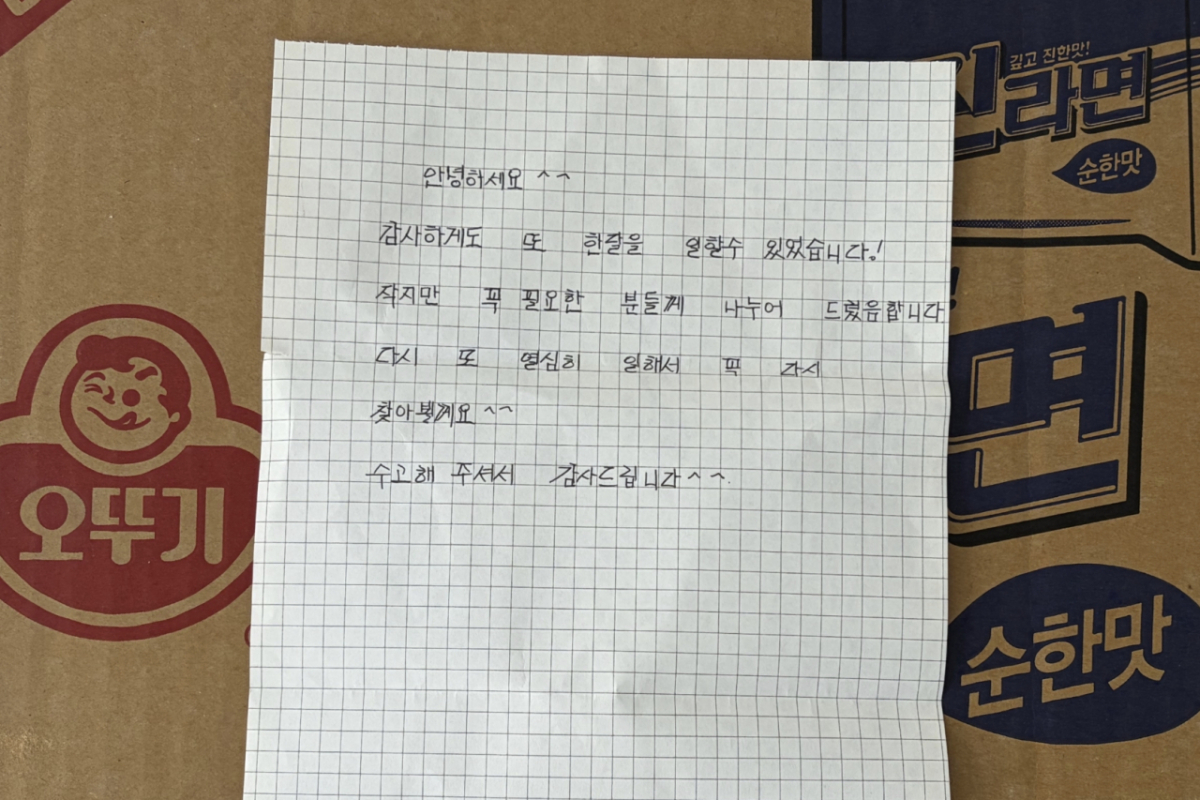 깊고 진한맛!
진라면
순한맛
안녕하세요 ^^
감사하게도 또 한달을 일할수 있었습니다!
작지만 꼭 필요한 분들께 나누어 드렸음합니다
다시 또 열심히 일해서 꼭 다시
찾아뵐게요 ^^
수고해 주셔서 감사드립니다 ^^.
오뚜기
면
순한맛